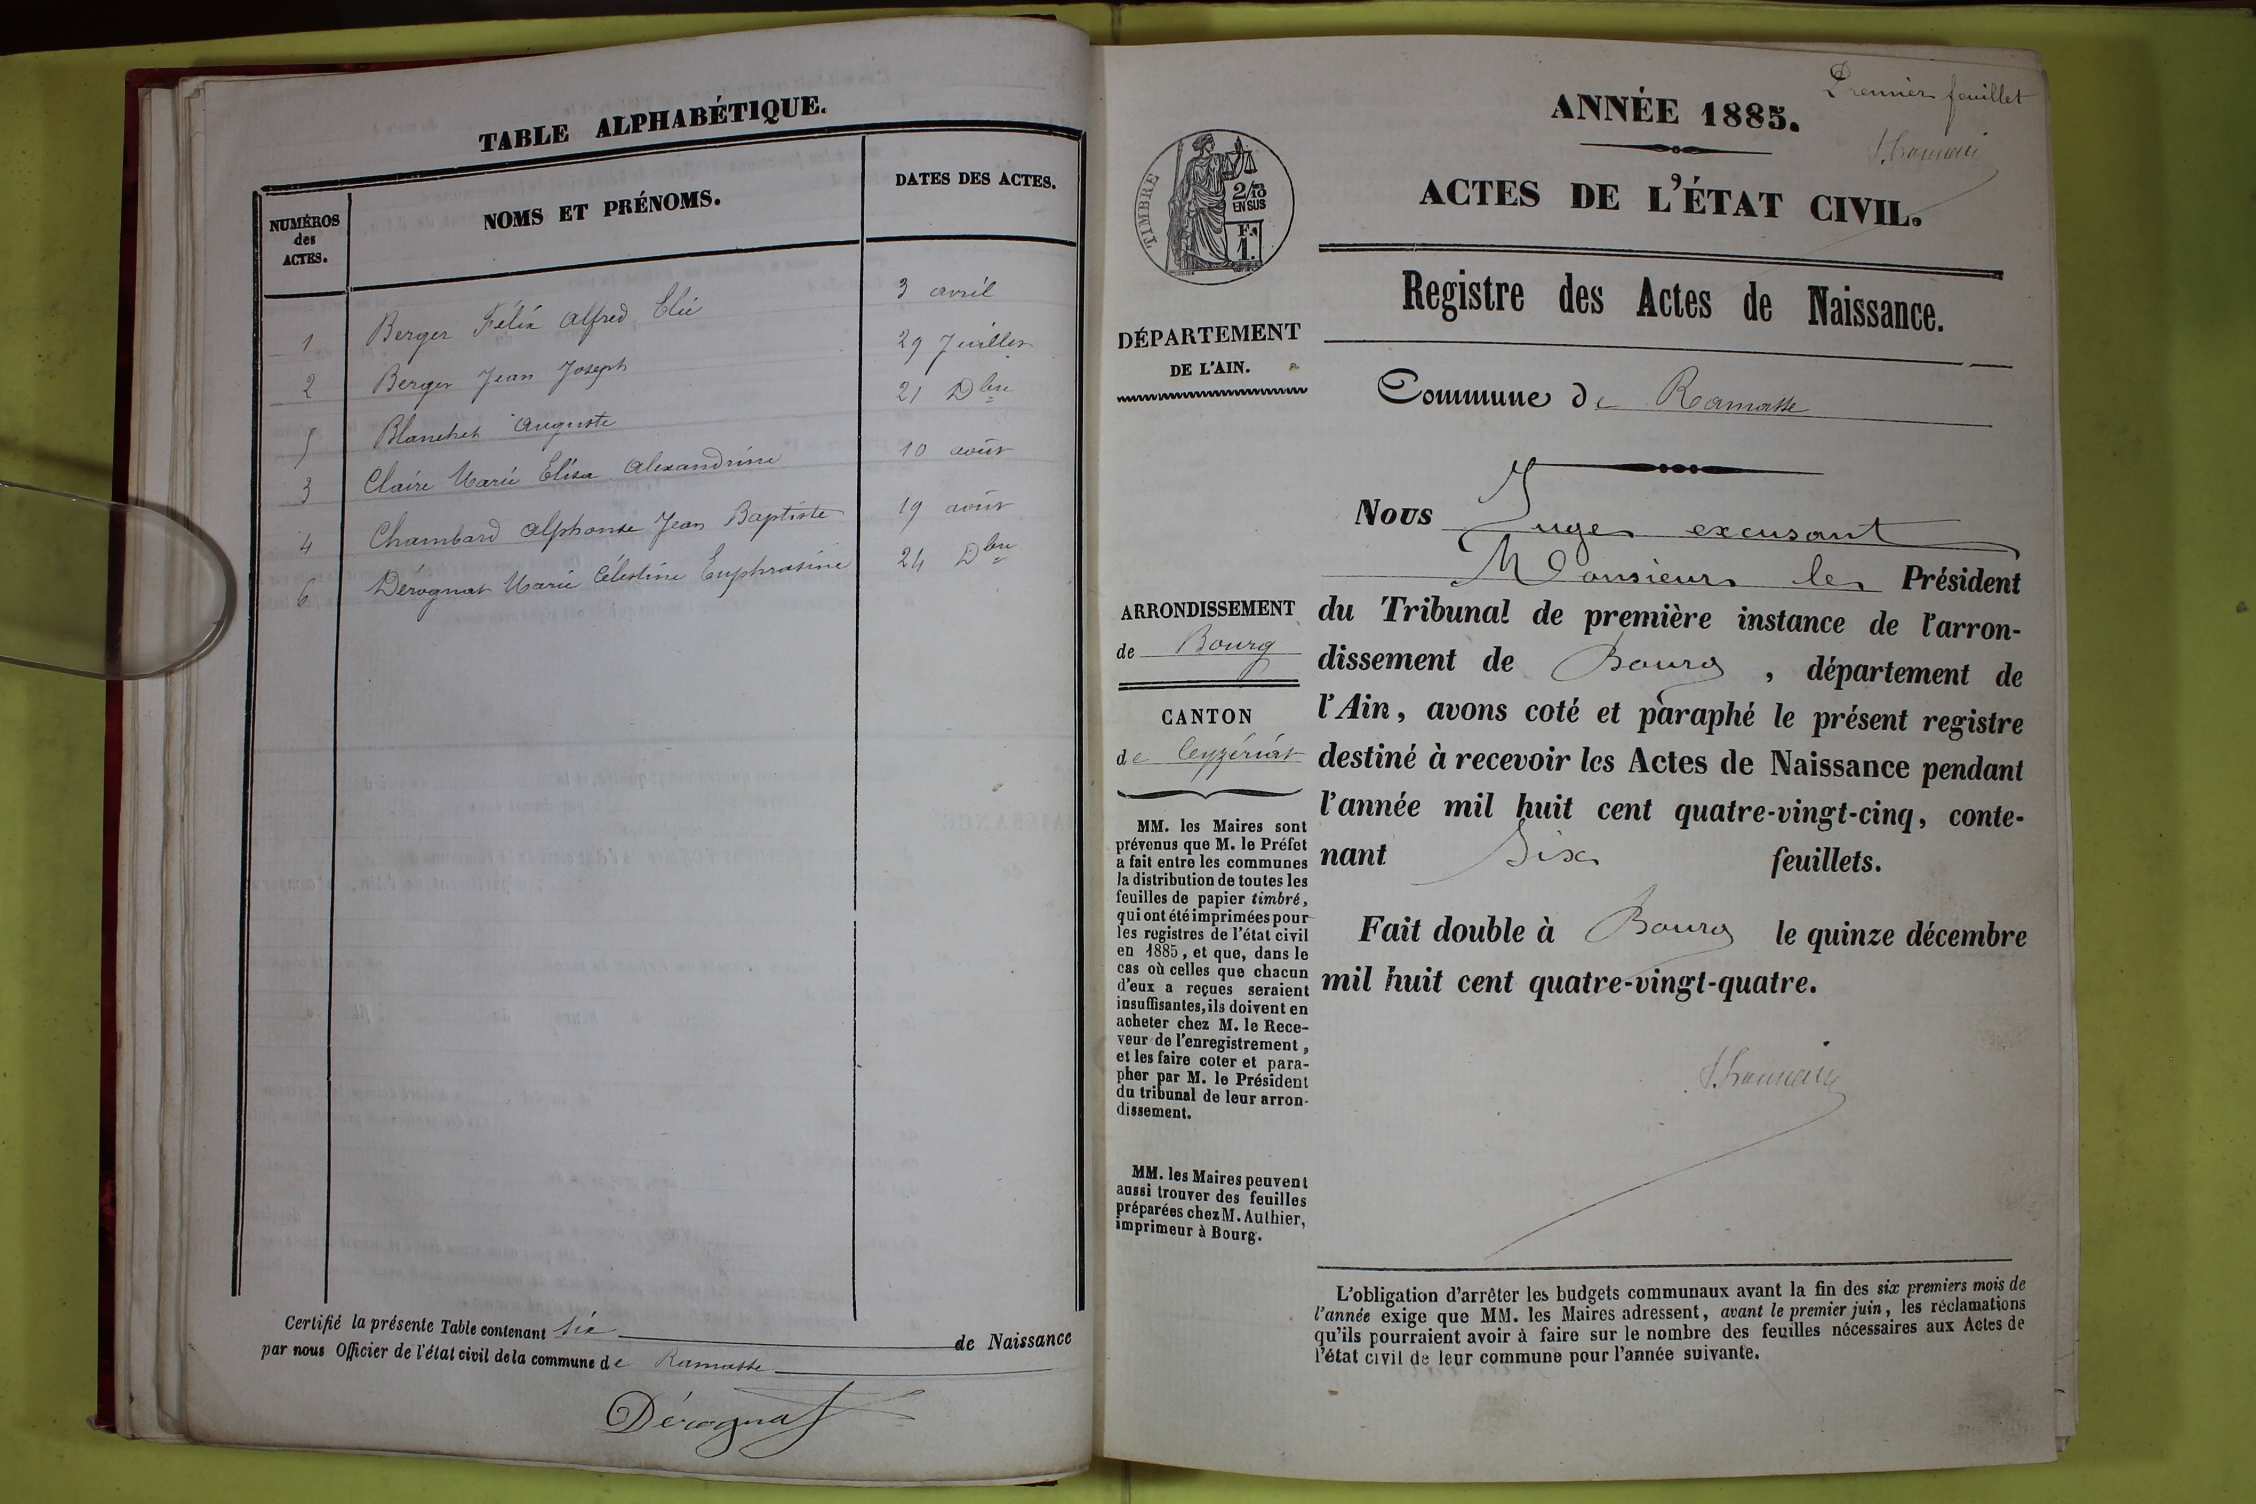 TABLE ALPHABÉTIQUE.
NUMÉROS
des
ACTES.
NOMS ET PRÉNOMS.
DATES DES ACTES.
1 Berger Félix Alfred Elie 3 avril
2 Berger Jean Joseph 29 Juillet
5 Blanchet Auguste 21 Dbre
3 Claire Marie Elisa Alexandrine 10 août
4 Chambard Alphonse Jean Baptiste 19 août
6 Dérognat Marie Célestine Euphrasine 24 Dbre
Certifié la présente Table contenant six de Naissance
par nous Officier de l'état civil de la commune de Ramasse
Dérognat
Premier feuillet
ANNÉE 1885.
TIMBRE
2/10
EN SUS
F.
1.
ACTES DE L'ÉTAT CIVIL.
Registre des Actes de Naissance.
DÉPARTEMENT
DE L'AIN.
Commune de Ramasse
Nous Juge excusant
Monsieur le Président
du Tribunal de première instance de l'arron-
dissement de Bourg, département de
l'Ain, avons coté et paraphé le présent registre
destiné à recevoir les Actes de Naissance pendant
l'année mil huit cent quatre-vingt-cinq, conte-
nant Six feuillets.
Fait double à Bourg le quinze décembre
mil huit cent quatre-vingt-quatre.
ARRONDISSEMENT
de Bourg
CANTON
de Ceyzériat
MM. les Maires sont
prévenus que M. le Préfet
a fait entre les communes
la distribution de toutes les
feuilles de papier timbré,
qui ont été imprimées pour
les registres de l'état civil
en 1885, et que, dans le
cas où celles que chacun
d'eux a reçues seraient
insuffisantes, ils doivent en
acheter chez M. le Rece-
veur de l'enregistrement,
et les faire coter et para-
pher par M. le Président
du tribunal de leur arron-
dissement.
MM. les Maires peuvent
aussi trouver des feuilles
préparées chez M. Authier,
imprimeur à Bourg.
L'obligation d'arrêter les budgets communaux avant la fin des six premiers mois de
l'année exige que MM. les Maires adressent, avant le premier juin, les réclamations
qu'ils pourraient avoir à faire sur le nombre des feuilles nécessaires aux Actes de
l'état civil de leur commune pour l'année suivante.